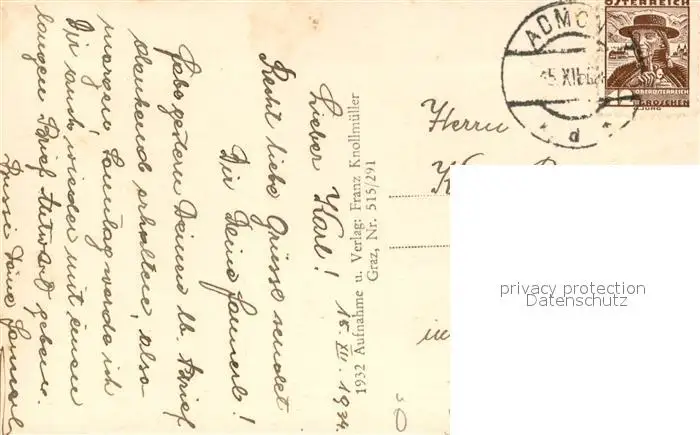 15. XII. 1934.
Lieber Karl!
Recht liebe Grüsse sendet
Dir Deine Hannerl!
Habe gestern Deinen lb. Brief
dankend erhalten, also
morgen Sonntag werde ich
Dir auch wieder mit einen
langen Brief Antwort geben.
Deine
1932 Aufnahme u. Verlag: Franz Knollmüller
Graz, Nr. 515/291
ÖSTERREICH
OBERÖSTERREICH
12 GROSCHEN
ADMO
15.XII
d
Herrn
in
privacy protection
Datenschutz